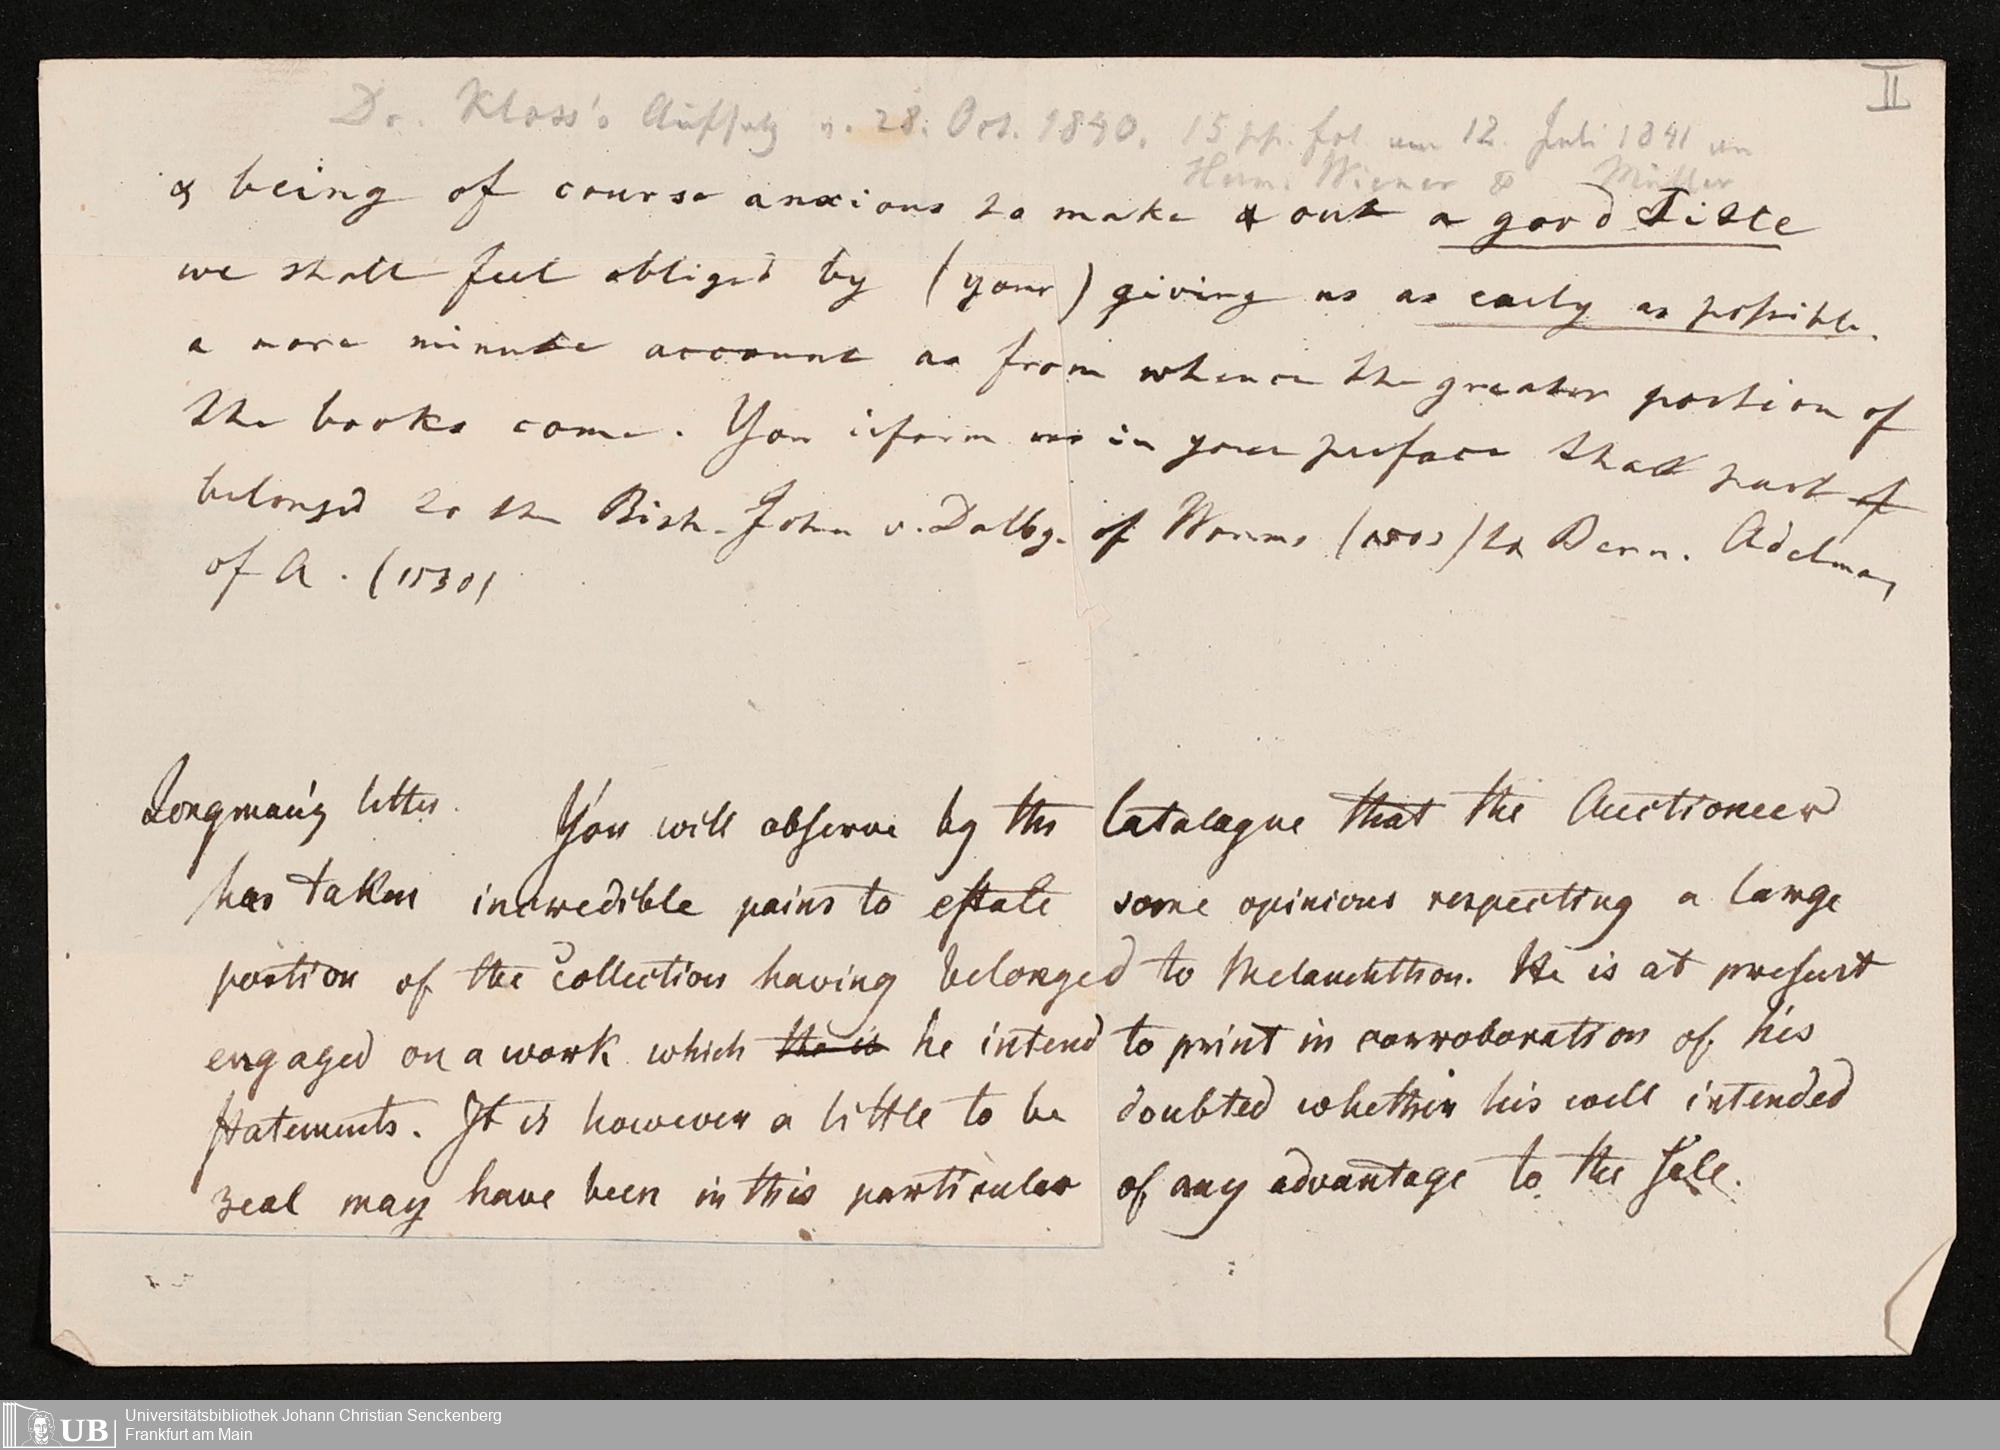 II
Dr. Kloss's Aufsatz v. 28. Oct. 1840. 15 pp. fol. am 12. Juli 1841 an
Herrn Wiener & Müller
& being of course anxious to make out a good Title
we shall feel obliged by (your) giving us as early as possible.
a more minute account as from whence the greater portion of
the books come. You iform us in your preface that part of
belongd to the Bish. John v. Dalbg. of Worms (1503) to Bern. Adelman,
of A. (1530)
Longman's letter. You will observe by the Catalogue that the Auctioneer
has taken incredible pains to estale some opinious respecting a large
portion of the Collection having belonged to Melanchthon. He is at present
engaged on a work which the is he intend to print in corroboration of his
statements. It is however a little to be doubted whether his well intended
zeal may have been in this particular of any advantage to the Sale.
UB
Universitätsbibliothek Johann Christian Senckenberg
Frankfurt am Main